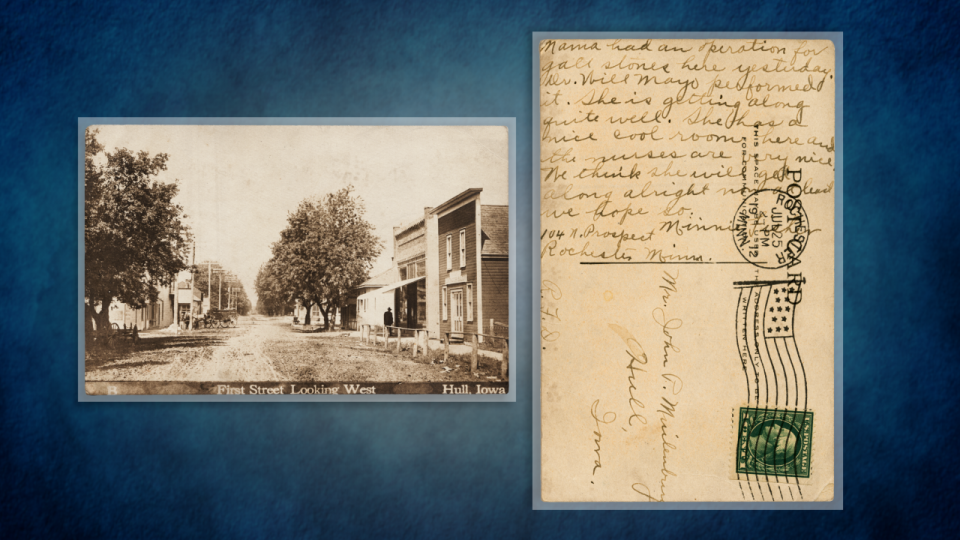 First Street Looking West
Hull, Iowa
Mama had an operation for
gall stones here yesterday.
Dr. Will Mayo performed
it. She is getting along
quite well. She has a
nice cool room here and
the nurses are very nice
We think she will get
along alright
we hope so.
104 N. Prospect Minnie
Rochester Minn.
POST CARD
THIS SPACE
ROCHESTER
JUN 25
PM
1912
MINN.
WRITTEN HERE
Mr. John P. Muilenburg
Hull,
Iowa.
R.F.D.
U.S. POSTAGE